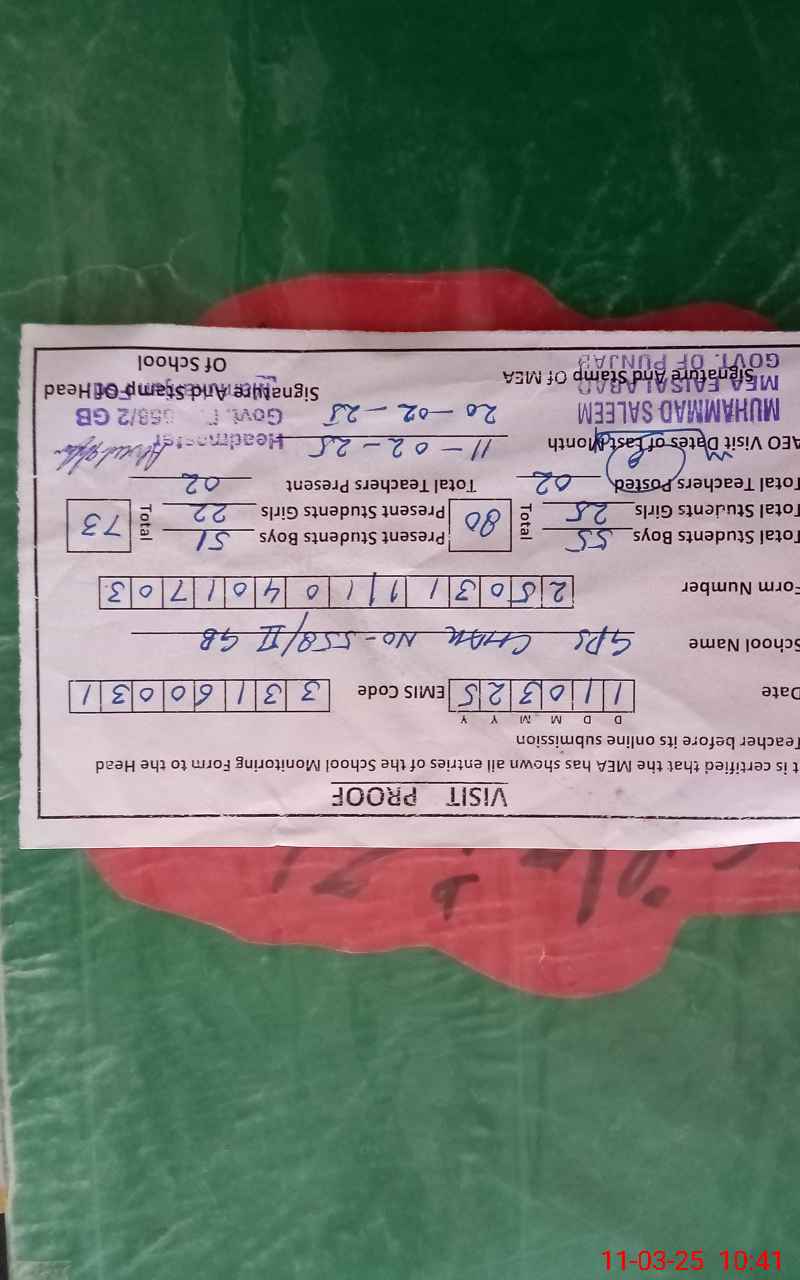 VISIT PROOF
t is certified that the MEA has shown all entries of the School Monitoring Form to the Head
Teacher before its online submission
D D M M Y Y
Date 110325 EMIS Code 33160031
School Name GPS CHAK NO-558/II GB
Form Number 250311110401703
Total Students Boys 55 Total 80 Present Students Boys 51 Total 73
Total Students Girls 25 Present Students Girls 22
Total Teachers Posted 02 Total Teachers Present 02
AEO Visit Dates of Last Month 11-02-25
20-02-25
MUHAMMAD SALEEM
MEA FAISALABAD
GOVT. OF PUNJAB
Signature And Stamp Of MEA
Headmaster
Govt. 558/2 GB
Signature And Stamp Of Head
Of School
11-03-25 10:41